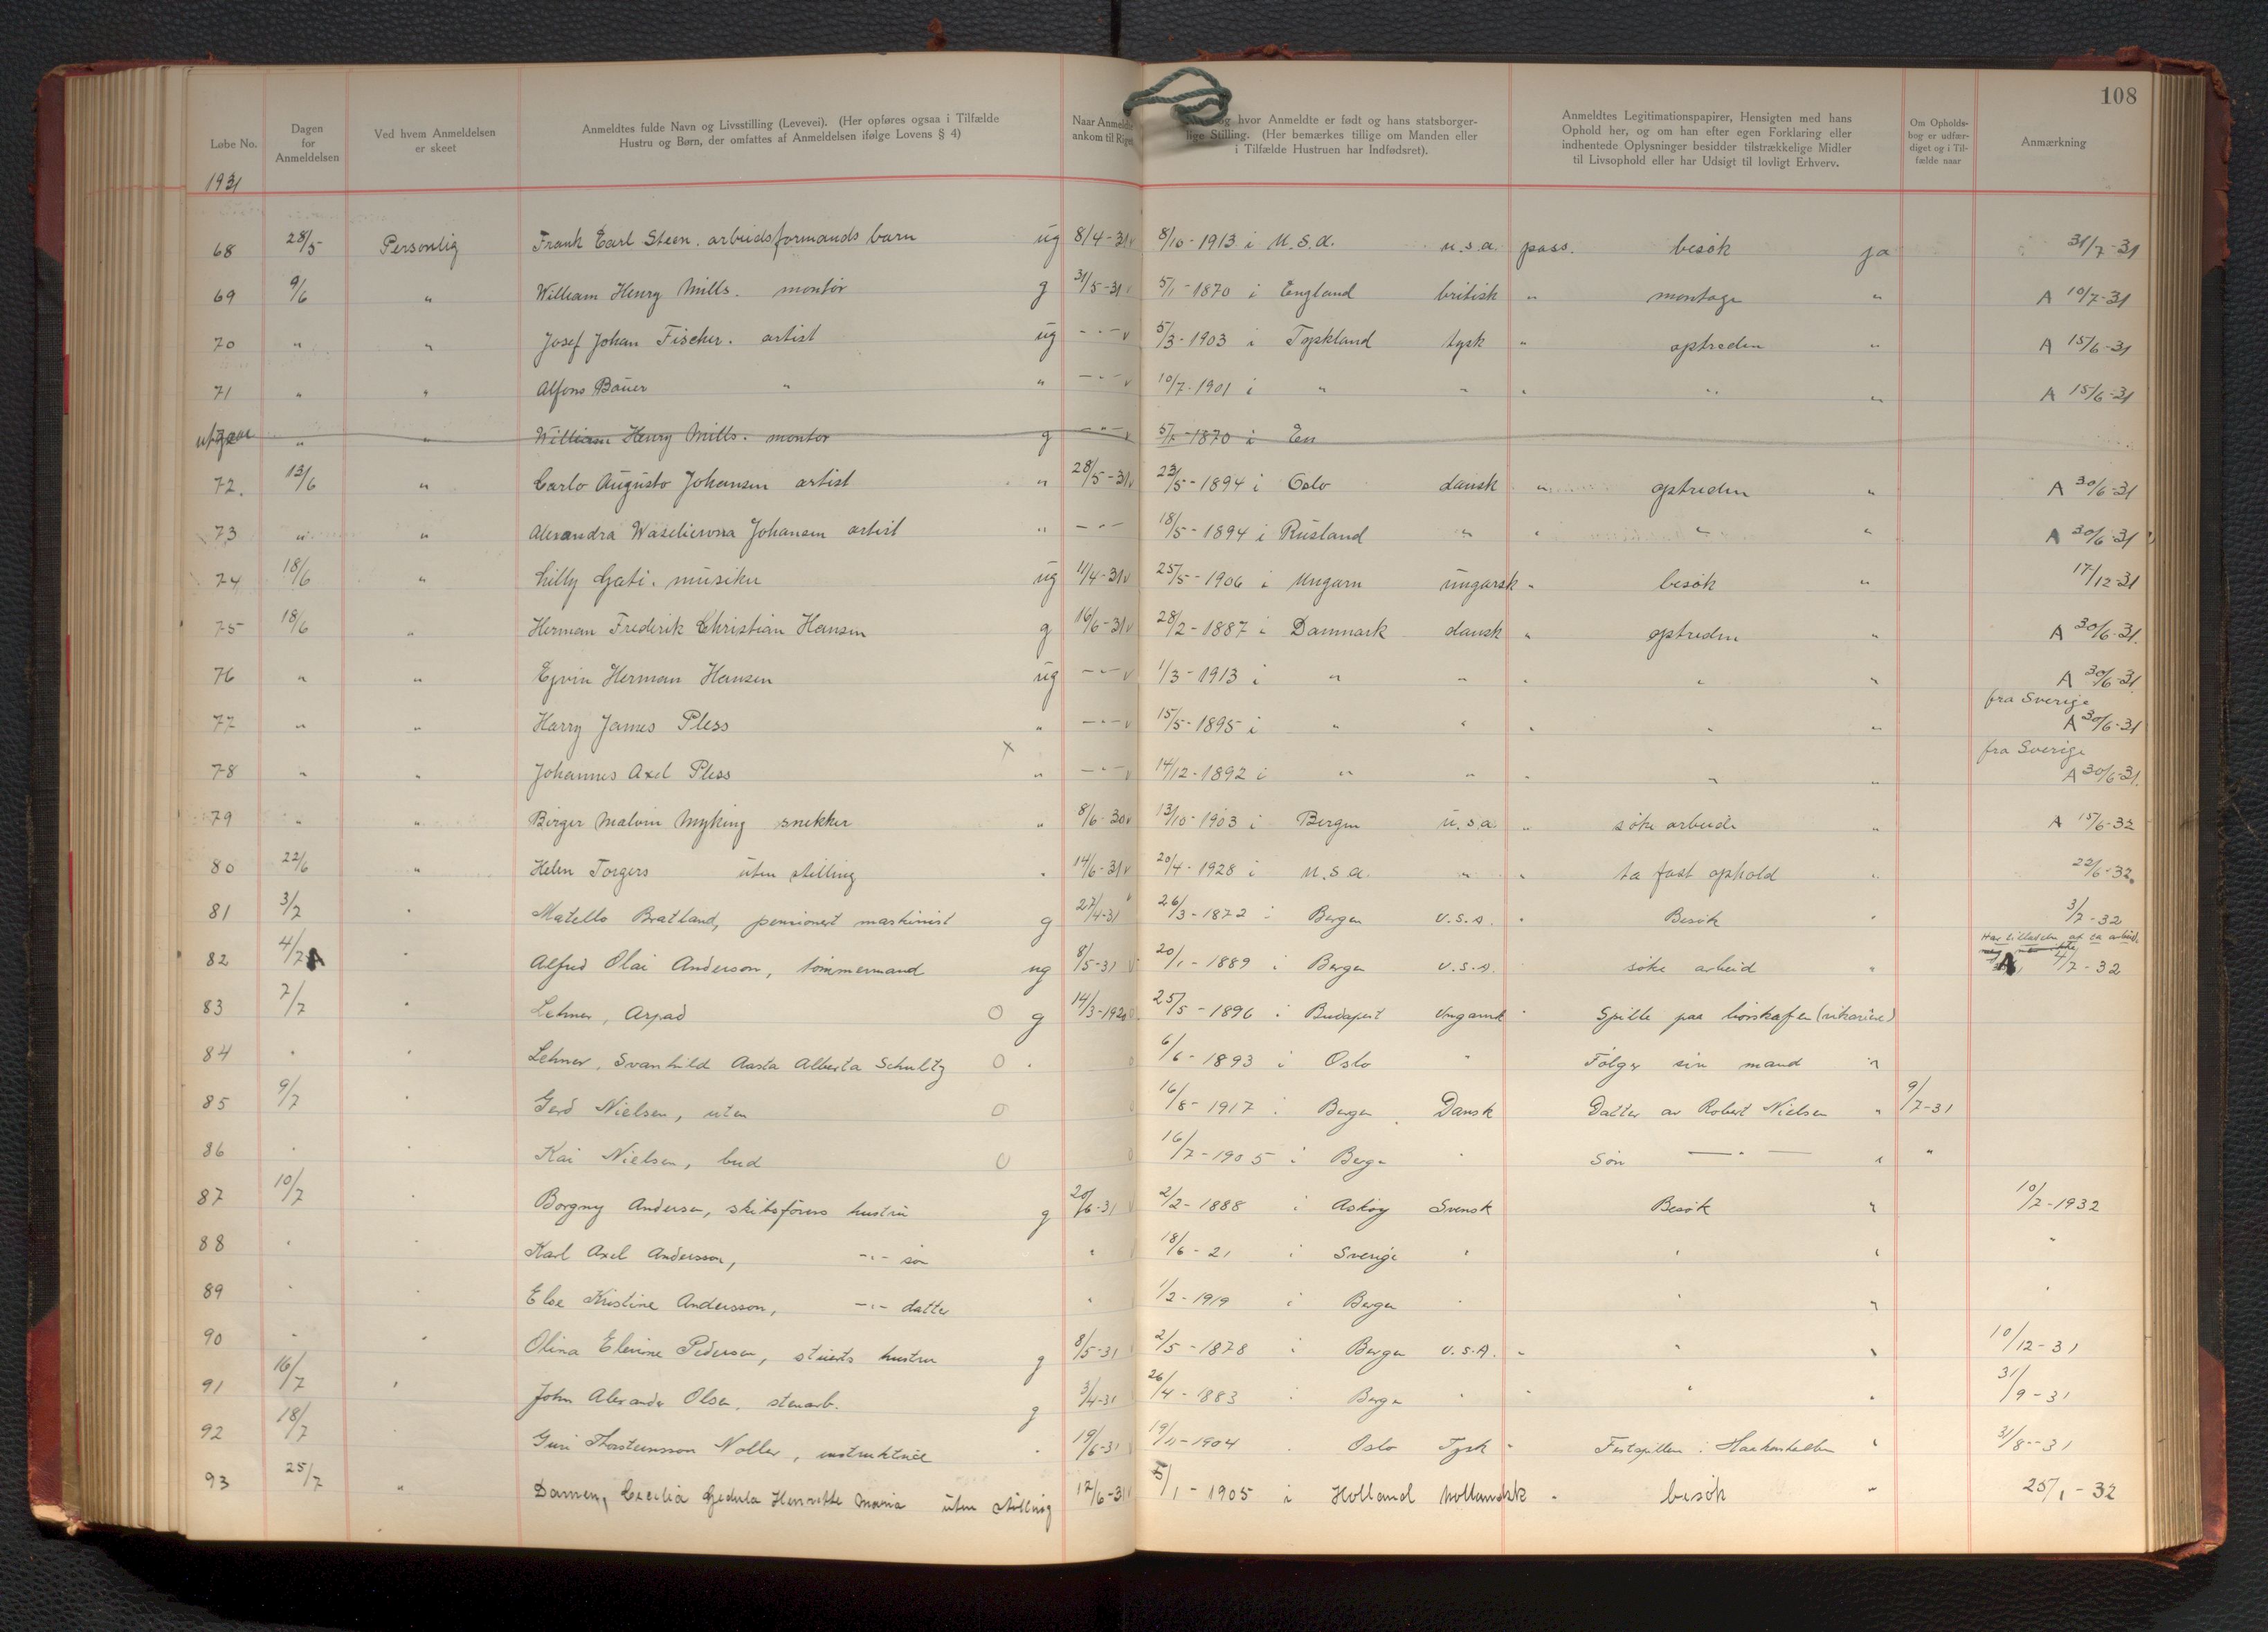 108
Løbe No.
Dagen for Anmeldelsen
Ved hvem Anmeldelsen er skeet
Anmeldtes fulde Navn og Livsstilling (Levevei). (Her opføres ogsaa i Tilfælde
Hustru og Børn, der omfattes af Anmeldelsen ifølge Lovens § 4)
Naar Anmeldte
ankom til Riget
og hvor Anmeldte er født og hans statsborger-
lige Stilling. (Her bemærkes tillige om Manden eller
i Tilfælde Hustruen har Indfødsret).
Anmeldtes Legitimationspapirer, Hensigten med hans
Ophold her, og om han efter egen Forklaring eller
indhentede Oplysninger besidder tilstrækkelige Midler
til Livsophold eller har Udsigt til lovligt Erhverv.
Om Opholds-
bog er udfær-
diget og i Til-
fælde naar
Anmærkning
1931
68 28/5 Personlig Frank Earl Steen. arbeidsformands barn ug 8/4-31 v 8/10-1913 i U.S.A. u.s.a. pass. besök ja 31/7-31
69 9/6 " William Henry Mills. montör g 31/5-31 v 5/1-1870 i England britisk " montage " A 10/7-31
70 " " Josef Johan Fischer. artist ug - " - v 5/3-1903 i Tyskland tysk " optreden " A 15/6-31
71 " " Alfons Bauer " " - " - v 10/7-1901 i " " " " " A 15/6-31
utgaar " " William Henry Mills. montör g - " - v 5/1-1870 i En
72. 13/6 " Carlo Augusto Johansen artist " 28/5-31 v 23/5-1894 i Oslo dansk " optreden " A 30/6-31
73 " " Alexandra Wasiliewna Johansen artist " - " - 18/5-1894 i Rusland " " " " A 30/6-31
74 18/6 " Lilly Gati. musiker ug 11/4-31 v 25/5-1906 i Ungarn ungarsk " besök " 17/12-31
75 18/6 " Herman Frederik Christian Hansen g 16/6-31 v 28/2-1887 i Danmark dansk " optreden " A 30/6-31.
76 " " Ejvin Herman Hansen ug - " - v 1/3-1913 i " " " " " A 30/6-31
fra Sverige
77 " " Harry James Pless " - " - v 15/5-1895 i " " " " " A 30/6-31
fra Sverige
78 " " Johannes Axel Pless x " - " - v 14/12-1892 i " " " " " A 30/6-31.
79 " " Birger Malvin Myking snekker " 8/6-30 v 13/10-1903 i Bergen u.s.a. " söke arbeide " A 15/6-32
80 22/6 " Helen Torgers uten stilling " 14/6-31 v 20/4-1928 i U.S.A. " " ta fast ophold " 22/6-32.
81 3/7 " Matello Bratland, pensionert maskinist g 27/4-31 26/3-1872 i Bergen U.S.A. " Besök " 3/7-32
Har tilladelse at ta arbeid.
82 4/7 A " Alfred Olai Anderson, tömmermand ug 8/5-31 v 20/1-1889 i Bergen U.S.A. söke arbeid " A 4/7-32
83 7/7 " Lehner, Arpad O g 14/3-1920 25/5-1896 i Budapest Ungarsk " Spille paa börskafen (vikariere)
84 " " Lehner, Svanhild Aasta Alberta Schultz O " 6/6-1893 i Oslo " Fölger sin mand "
85 9/7 " Gerd Nielsen, uten O 16/8-1917 i Bergen Dansk Datter av Robert Nielsen " 9/7-31
86 " " Kai Nielsen, bud O 16/7-1905 i Bergen " Sön - " - " "
87 10/7 " Borgny Andersen, skibsförers hustru g 20/6-31 2/2-1888 i Asköy Svensk Besök " 10/7-1932
88 " " Karl Axel Andersson, - " - sön " 18/6-21 i Sverige " " " "
89 " " Else Kristine Andersson, - " - datter " 1/2-1919 i Bergen " " " "
90 " " Olina Elevine Pedersen, stuerts hustru g 8/5-31 2/5-1878 i Bergen U.S.A. " " " 10/12-31
91 16/7 " John Alexander Olsen, stenarb. g 3/4-31 26/4-1883 i Bergen " " " " 31/9-31
92 18/7 Guri Thorsteinsson Noller, instruktrice " 19/6-31 19/11-1904 Oslo Tysk " Festspillene i Haakonshallen " 31/8-31
93 25/7 " Damen, Cecilia Gedula Henriette Maria uten stilling 12/6-31 5/1-1905 i Holland hollandsk " besök " 25/1-32